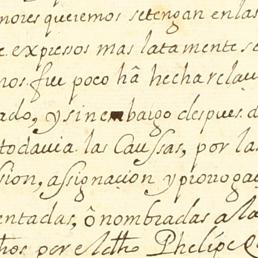 nores queremos setengan enlas
e expressos mas latamente se
nos fue poco hâ hecharelau
ado, y sinembargo despues d
todauia las Caussas, por las
sion, assignacion y prorogaç
entadas, ô nombradas a la
hos por el dho Phelipe Q